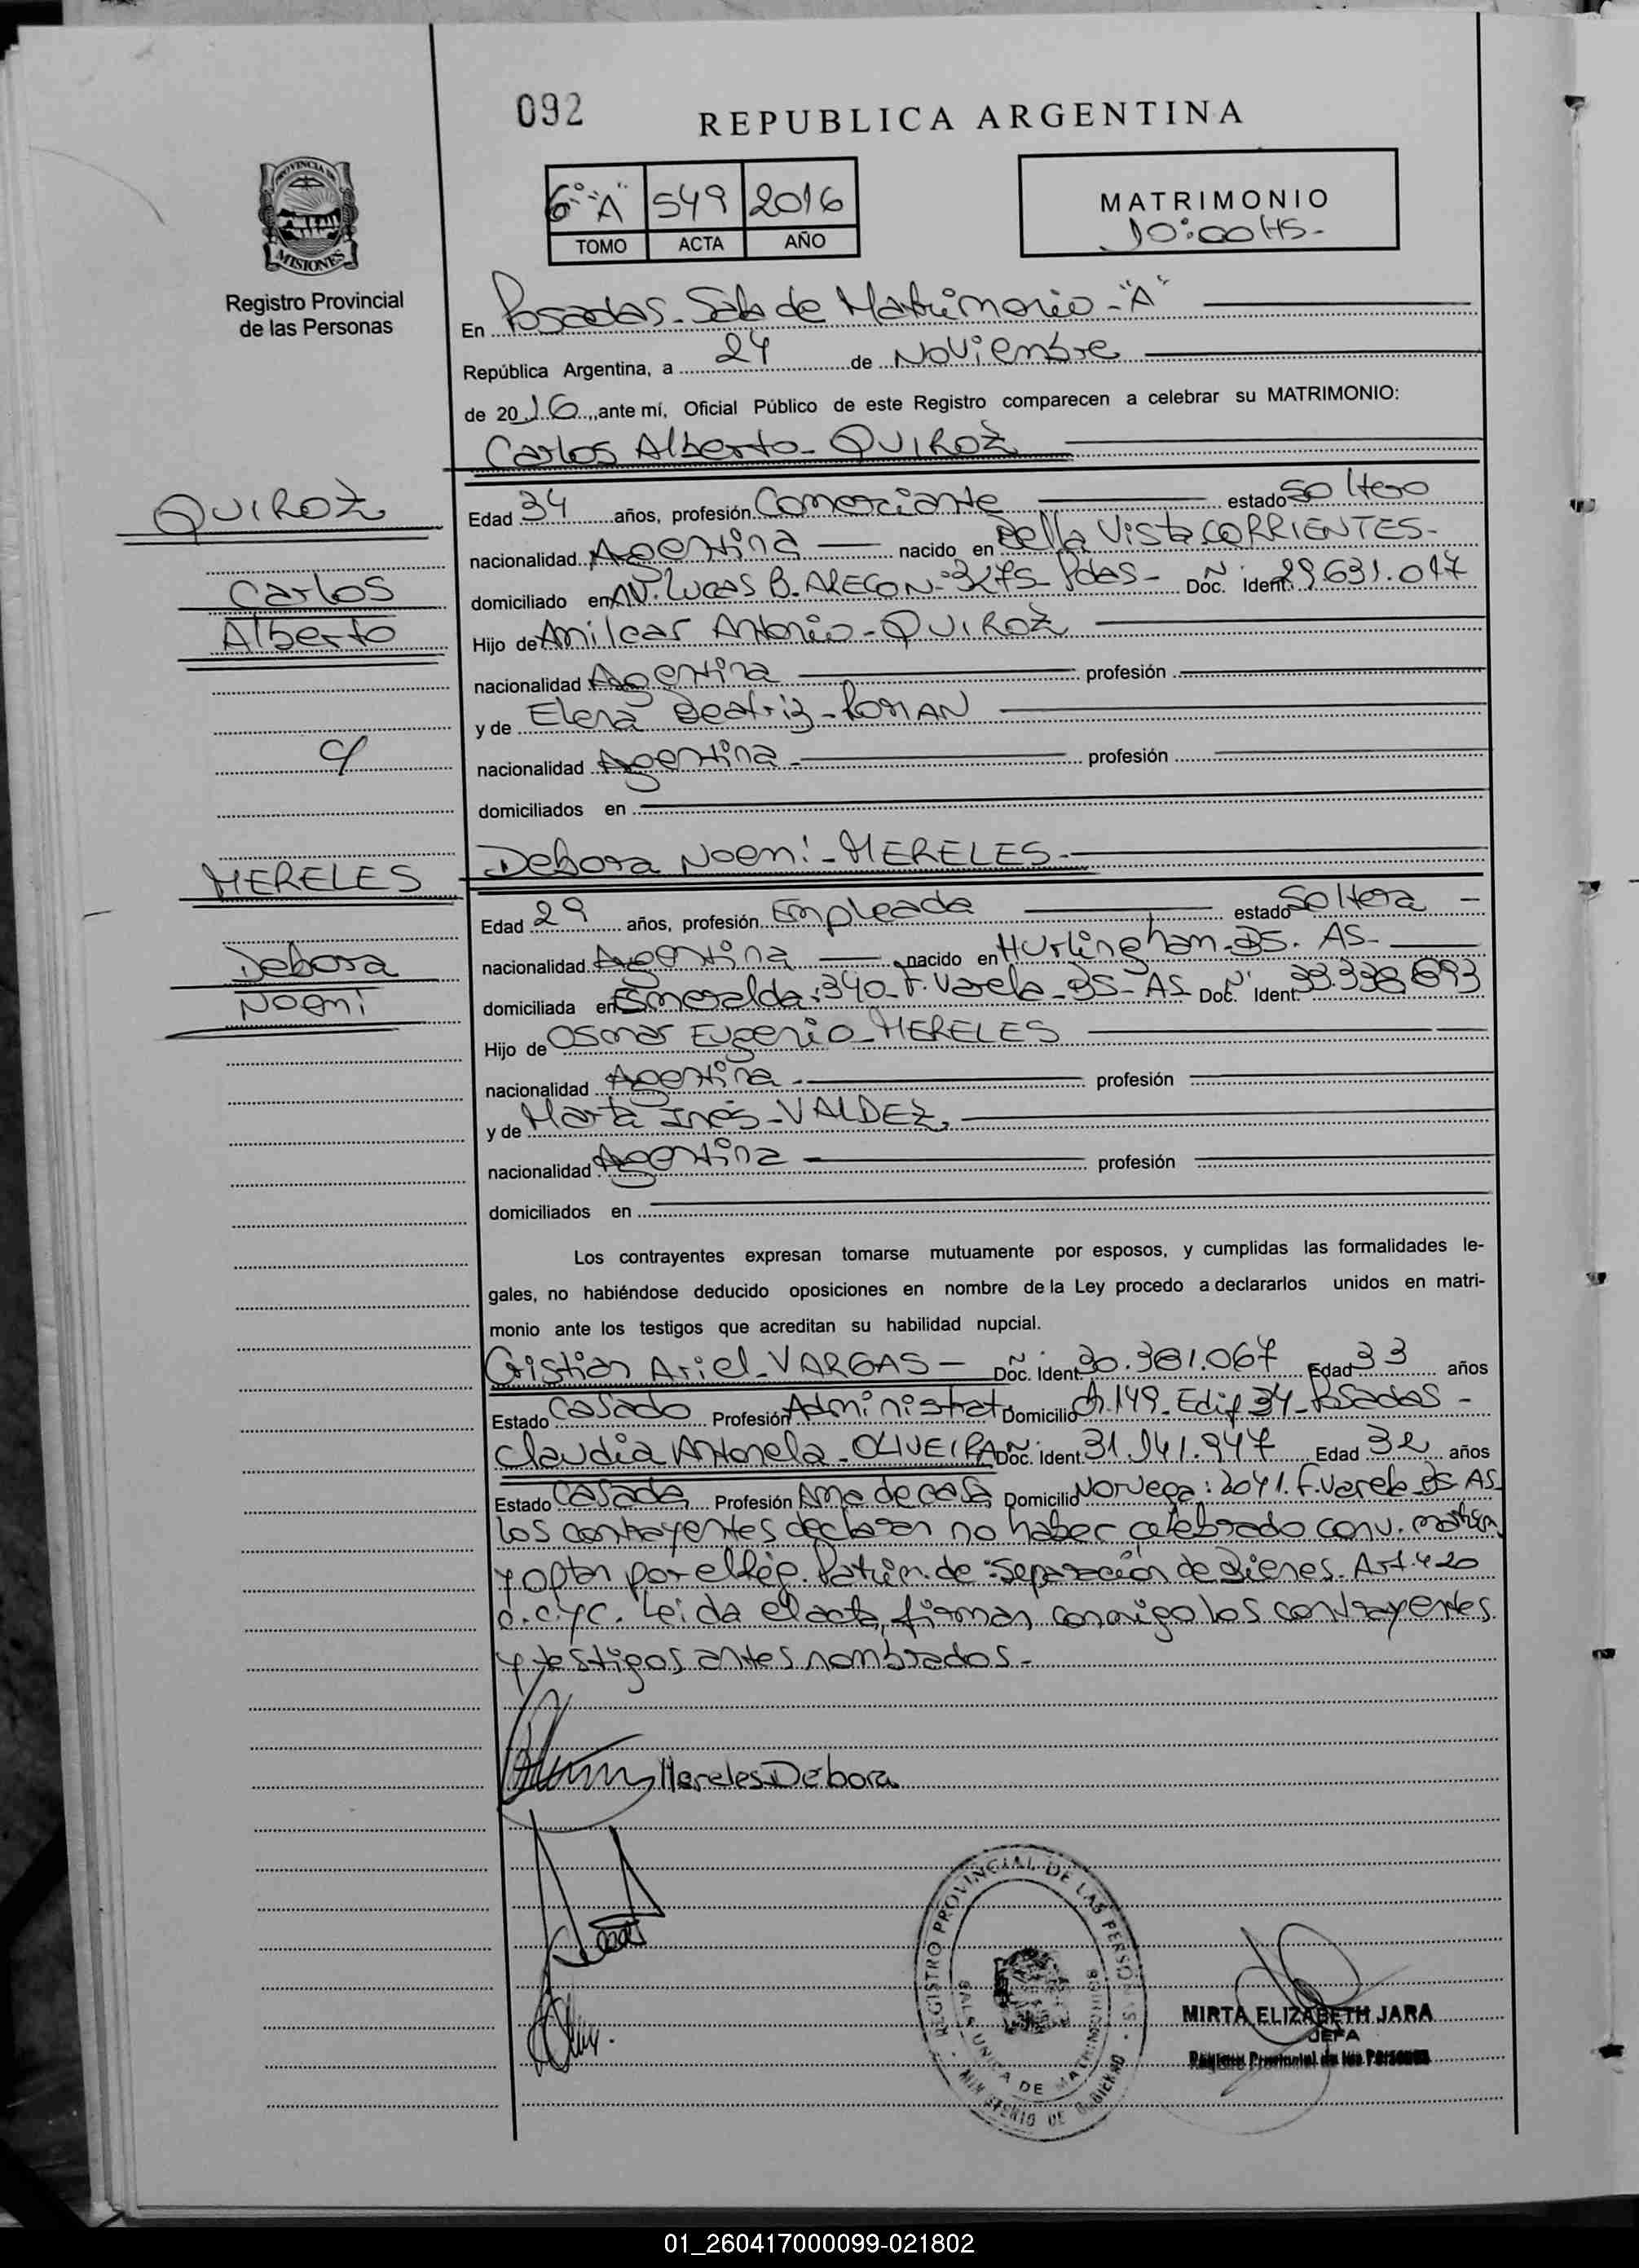 092
REPUBLICA ARGENTINA
PROVINCIA DE
MISIONES
Registro Provincial
de las Personas
6° "A" 549 2016
TOMO ACTA AÑO
MATRIMONIO
10:00 HS-
En Posadas- Sala de Matrimonio-"A"
República Argentina, a 24 de Noviembre
de 2016, ante mí, Oficial Público de este Registro comparecen a celebrar su MATRIMONIO:
Carlos Alberto- QUIROZ
QUIROZ
Carlos
Alberto
c/
MERELES
Debora
Noemi
Edad 34 años, profesión Comerciante estado Soltero
nacionalidad Argentina nacido en Bella Vista CORRIENTES-
domiciliado en AV. Lucas B. ARECO N°3275- Pdas- Doc. Ident. N°: 29.631.017
Hijo de Amilcar Antonio- QUIROZ
nacionalidad Argentina profesión
y de Elena Beatriz- ROMAN
nacionalidad Argentina- profesión
domiciliados en
Debora Noemi- MERELES-
Edad 29 años, profesión Empleada estado Soltera -
nacionalidad Argentina nacido en Hurlingham- BS. AS-
domiciliada en Esmeralda: 340- F. Varela- BS- AS Doc. Ident. N° 33.338.693
Hijo de Osmar Eugenio- MERELES
nacionalidad Argentina- profesión
y de Marta Inés- VALDEZ,
nacionalidad Argentina- profesión
domiciliados en
Los contrayentes expresan tomarse mutuamente por esposos, y cumplidas las formalidades le-
gales, no habiéndose deducido oposiciones en nombre de la Ley procedo a declararlos unidos en matri-
monio ante los testigos que acreditan su habilidad nupcial.
Cristian Ariel- VARGAS- Doc. Ident. N° 30.381.067 Edad 33 años
Estado Casado Profesión Administrat Domicilio Ch. 149- Edif 34- Posadas-
Claudia Antonela- OLIVEIRA Doc. Ident. N° 31.141.947 Edad 32 años
Estado Casada Profesión Ama de casa Domicilio Noruega: 2041. F. Varela- BS- AS
Los contrayentes declaran no haber celebrado conv. matrim.
y optan por el Rég. Patrim. de: Separación de Bienes. Art. 420
C.CyC. Leída el acta, firman conmigo los contrayentes
y testigos antes nombrados-
Mereles Debora
REGISTRO PROVINCIAL DE LAS PERSONAS
SALA UNICA DE MATRIMONIOS
MINISTERIO DE GOBIERNO
MIRTA ELIZABETH JARA
JEFA
Registro Provincial de las Personas
01_260417000099-021802